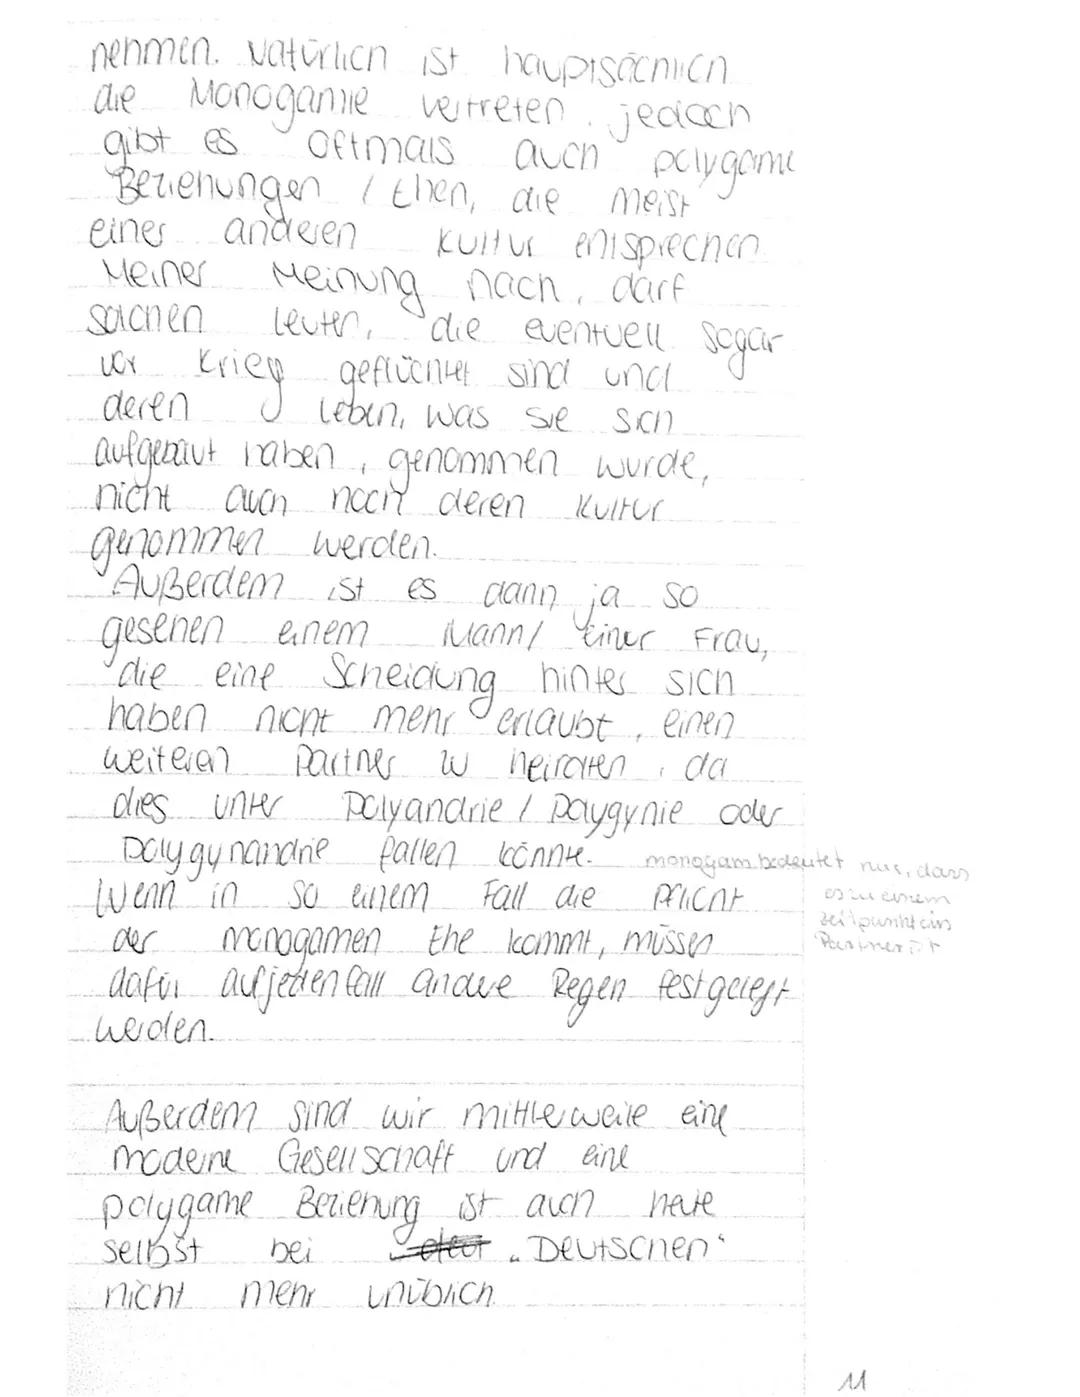 nehmen. Natürlich ist hauptsächlich
die Monogamie vertreten, jedoch
gibt es oftmals auch polygame
Beziehungen / Ehen, die meist
einer anderen Kultur entsprechen.
Meiner Meinung nach, darf
solchen Leuten, die eventuell sogar
vor Krieg geflüchtet sind und
deren Leben, was sie sich
aufgebaut haben, genommen wurde,
nicht auch noch deren Kultur
genommen werden.
Außerdem ist es dann ja so
gesehen einem Mann/ einer Frau,
die eine Scheidung hinter sich
haben nicht mehr erlaubt, einen
weiteren Partner zu heiraten, da
dies unter Polyandrie / Polygynie oder
Polygynandrie fallen könnte.
monogam bedeutet nur, dass
es zu einem
Zeitpunkt ein
Partner ist
Wenn in so einem Fall die Pflicht
der monogamen Ehe kommt, müssen
dafür aufjedenfall andere Regen festgelegt
werden.
Außerdem sind wir mittlerweile eine
moderne Gesellschaft und eine
polygame Beziehung ist auch heute
selbst bei „Deutschen“
nicht mehr unüblich.
11